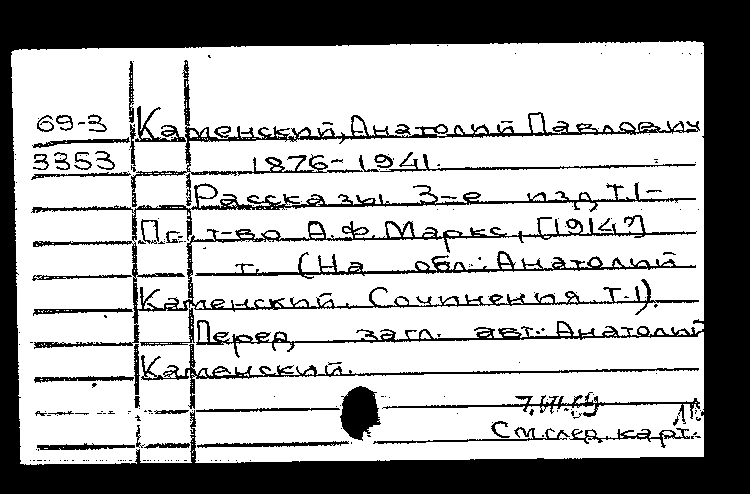 69-3 Каменский, Анатолий Павлович
3353 1876-1941.
Рассказы. 3-е изд. Т.1-
Пг., т-во А.Ф. Маркс, [1914?]
т. (На обл.: Анатолий
Каменский. Сочинения Т.1).
Перед загл. авт.: Анатолий
Каменский.
7.VII.69
См. след. карт.